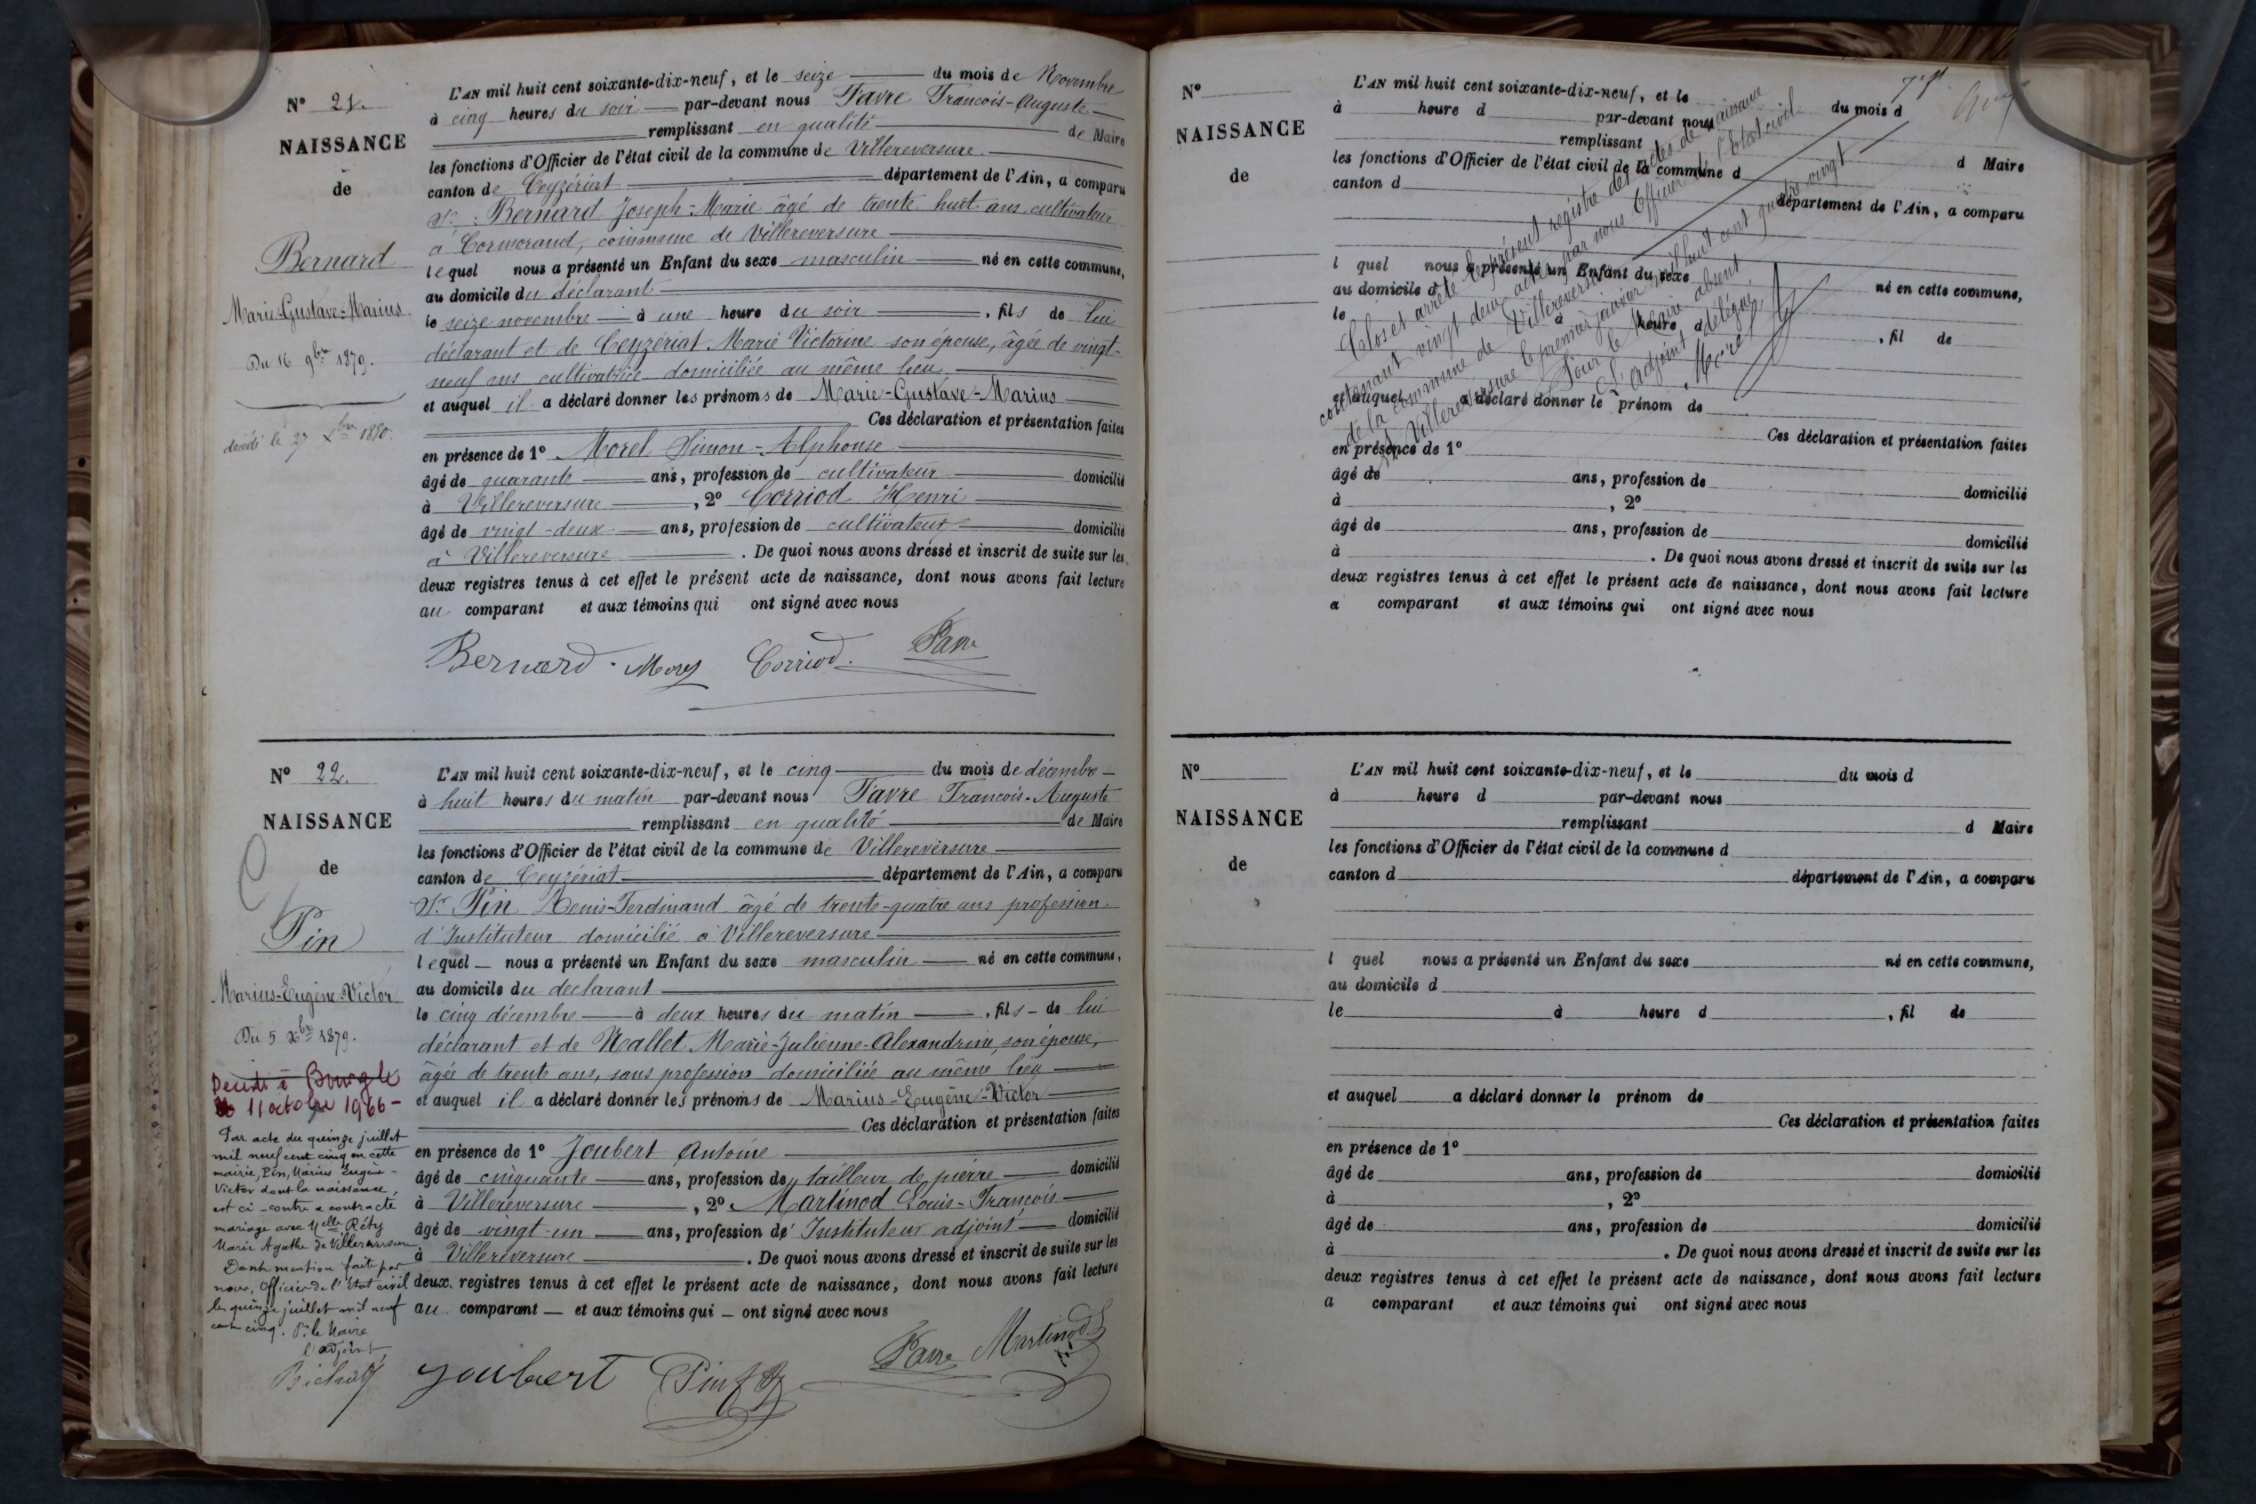 N° 21.
NAISSANCE
de
Bernard
Marie-Gustave-Marius
Du 16 9bre 1879.
décédé le 27 Xbre 1880.
L'AN mil huit cent soixante-dix-neuf, et le seize du mois de Novembre
à cinq heures du soir par-devant nous Favre François-Auguste
remplissant en qualité de Maire
les fonctions d'Officier de l'état civil de la commune de Villereversure
canton de Ceyzériat département de l'Ain, a comparu
Sr Bernard Joseph-Marie âgé de trente huit ans cultivateur
à Cormorand, commune de Villereversure
lequel nous a présenté un Enfant du sexe masculin né en cette commune,
au domicile du déclarant
le seize novembre à une heure du soir, fils de lui
déclarant et de Ceyzériat Marie Victorine son épouse, âgée de vingt-
neuf ans cultivatrice domiciliée au même lieu
et auquel il a déclaré donner les prénoms de Marie-Gustave-Marius
Ces déclaration et présentation faites
en présence de 1° Morel Simon-Alphonse
âgé de quarante ans, profession de cultivateur domicilié
à Villereversure, 2° Corriod Henri
âgé de vingt-deux ans, profession de cultivateur domicilié
à Villereversure. De quoi nous avons dressé et inscrit de suite sur les
deux registres tenus à cet effet le présent acte de naissance, dont nous avons fait lecture
au comparant et aux témoins qui ont signé avec nous
Bernard. Morel Corriod. Favre
N° 22.
NAISSANCE
de
Pin
Marius-Eugène-Victor
Du 5 Xbre 1879.
Décédé à Bourg le
11 octobre 1966-
Par acte du quinze juillet
mil neuf cent cinq en cette
mairie, Pin, Marius Eugène-
Victor dont la naissance
est ci-contre a contracté
mariage avec Melle Réty
Marie Agathe de Villereversure
Dont mention faite par
nous, Officier de l'Etat civil
le quinze juillet mil neuf
cent cinq. Pr le Maire
l'adjoint
L'AN mil huit cent soixante-dix-neuf, et le cinq du mois de décembre
à huit heures du matin par-devant nous Favre François-Auguste
remplissant en qualité de Maire
les fonctions d'Officier de l'état civil de la commune de Villereversure
canton de Ceyzériat département de l'Ain, a comparu
Sr Pin Denis-Ferdinand âgé de trente-quatre ans profession
d'Instituteur domicilié à Villereversure
lequel nous a présenté un Enfant du sexe masculin né en cette commune,
au domicile du déclarant
le cinq décembre à deux heures du matin, fils de lui
déclarant et de Mallet Marie-Julienne-Alexandrine, son épouse,
âgée de trente ans, sans profession domiciliée au même lieu
et auquel il a déclaré donner les prénoms de Marius-Eugène-Victor
Ces déclaration et présentation faites
en présence de 1° Joubert Antoine
âgé de cinquante ans, profession de tailleur de pierre domicilié
à Villereversure, 2° Martinod Louis-François
âgé de vingt-un ans, profession de Instituteur adjoint domicilié
à Villereversure. De quoi nous avons dressé et inscrit de suite sur les
deux registres tenus à cet effet le présent acte de naissance, dont nous avons fait lecture
au comparant et aux témoins qui ont signé avec nous
Joubert Pin Favre Martinod
N°
NAISSANCE
de
L'AN mil huit cent soixante-dix-neuf, et le du mois d
à heure d par-devant nous
remplissant d Maire
les fonctions d'Officier de l'état civil de la commune d
canton d département de l'Ain, a comparu
l quel nous a présenté un Enfant du sexe né en cette commune,
au domicile d
le à heure d, fil de
et auquel a déclaré donner le prénom de
Ces déclaration et présentation faites
en présence de 1°
âgé de ans, profession de domicilié
à, 2°
âgé de ans, profession de domicilié
à. De quoi nous avons dressé et inscrit de suite sur les
deux registres tenus à cet effet le présent acte de naissance, dont nous avons fait lecture
a comparant et aux témoins qui ont signé avec nous
Clos et arrêté le présent registre des actes de naissance
contenant vingt deux actes par nous Officier de l'Etat civil
de la commune de Villereversure
A Villereversure le premier janvier mil huit cent quatre vingt
Pour le Maire absent
L'adjoint délégué
N°
NAISSANCE
de
L'AN mil huit cent soixante-dix-neuf, et le du mois d
à heure d par-devant nous
remplissant d Maire
les fonctions d'Officier de l'état civil de la commune d
canton d département de l'Ain, a comparu
l quel nous a présenté un Enfant du sexe né en cette commune,
au domicile d
le à heure d, fil de
et auquel a déclaré donner le prénom de
Ces déclaration et présentation faites
en présence de 1°
âgé de ans, profession de domicilié
à, 2°
âgé de ans, profession de domicilié
à. De quoi nous avons dressé et inscrit de suite sur les
deux registres tenus à cet effet le présent acte de naissance, dont nous avons fait lecture
a comparant et aux témoins qui ont signé avec nous